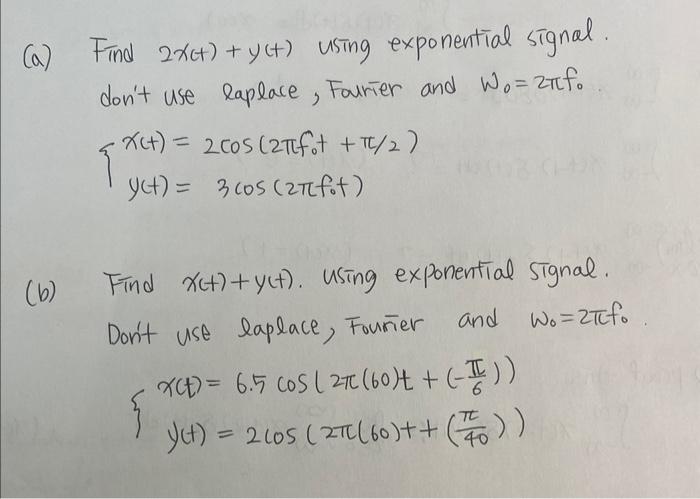 (a) Find 2x(t) + y(t) using exponential signal.
don't use laplace, Fourier and W₀ = 2πf₀.
x(t) = 2cos(2πf₀t + π/2)
y(t) = 3cos(2πf₀t)
(b) Find x(t) + y(t). using exponential signal.
Don't use laplace, Fourier and W₀ = 2πf₀.
x(t) = 6.5 cos(2π(60)t + (-π/6))
y(t) = 2cos(2π(60)t + (π/40))